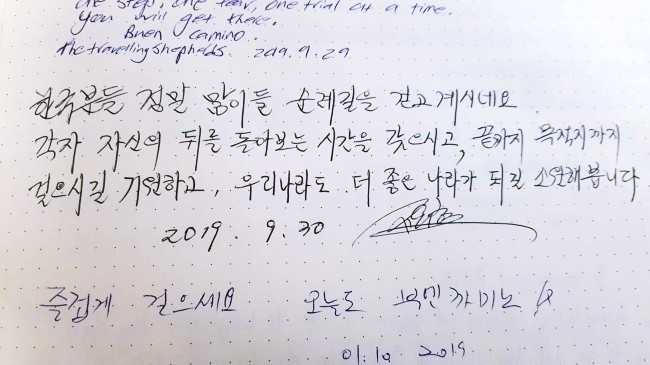 one step, one tear, one trial at a time.
You will get there.
Buen Camino.
thetravellingshepherds. 2019.9.29
한국분들 정말 많이들 순례길을 걷고계시네요
각자 자신의 뒤를 돌아보는 시간을 갖으시고, 끝까지 목적지까지
걸으시길 기원하고, 우리나라도 더 좋은 나라가 되길 소원해봅니다
2019. 9.30
즐겁게 걸으세요 오늘도 부엔까미노
01.10 2019